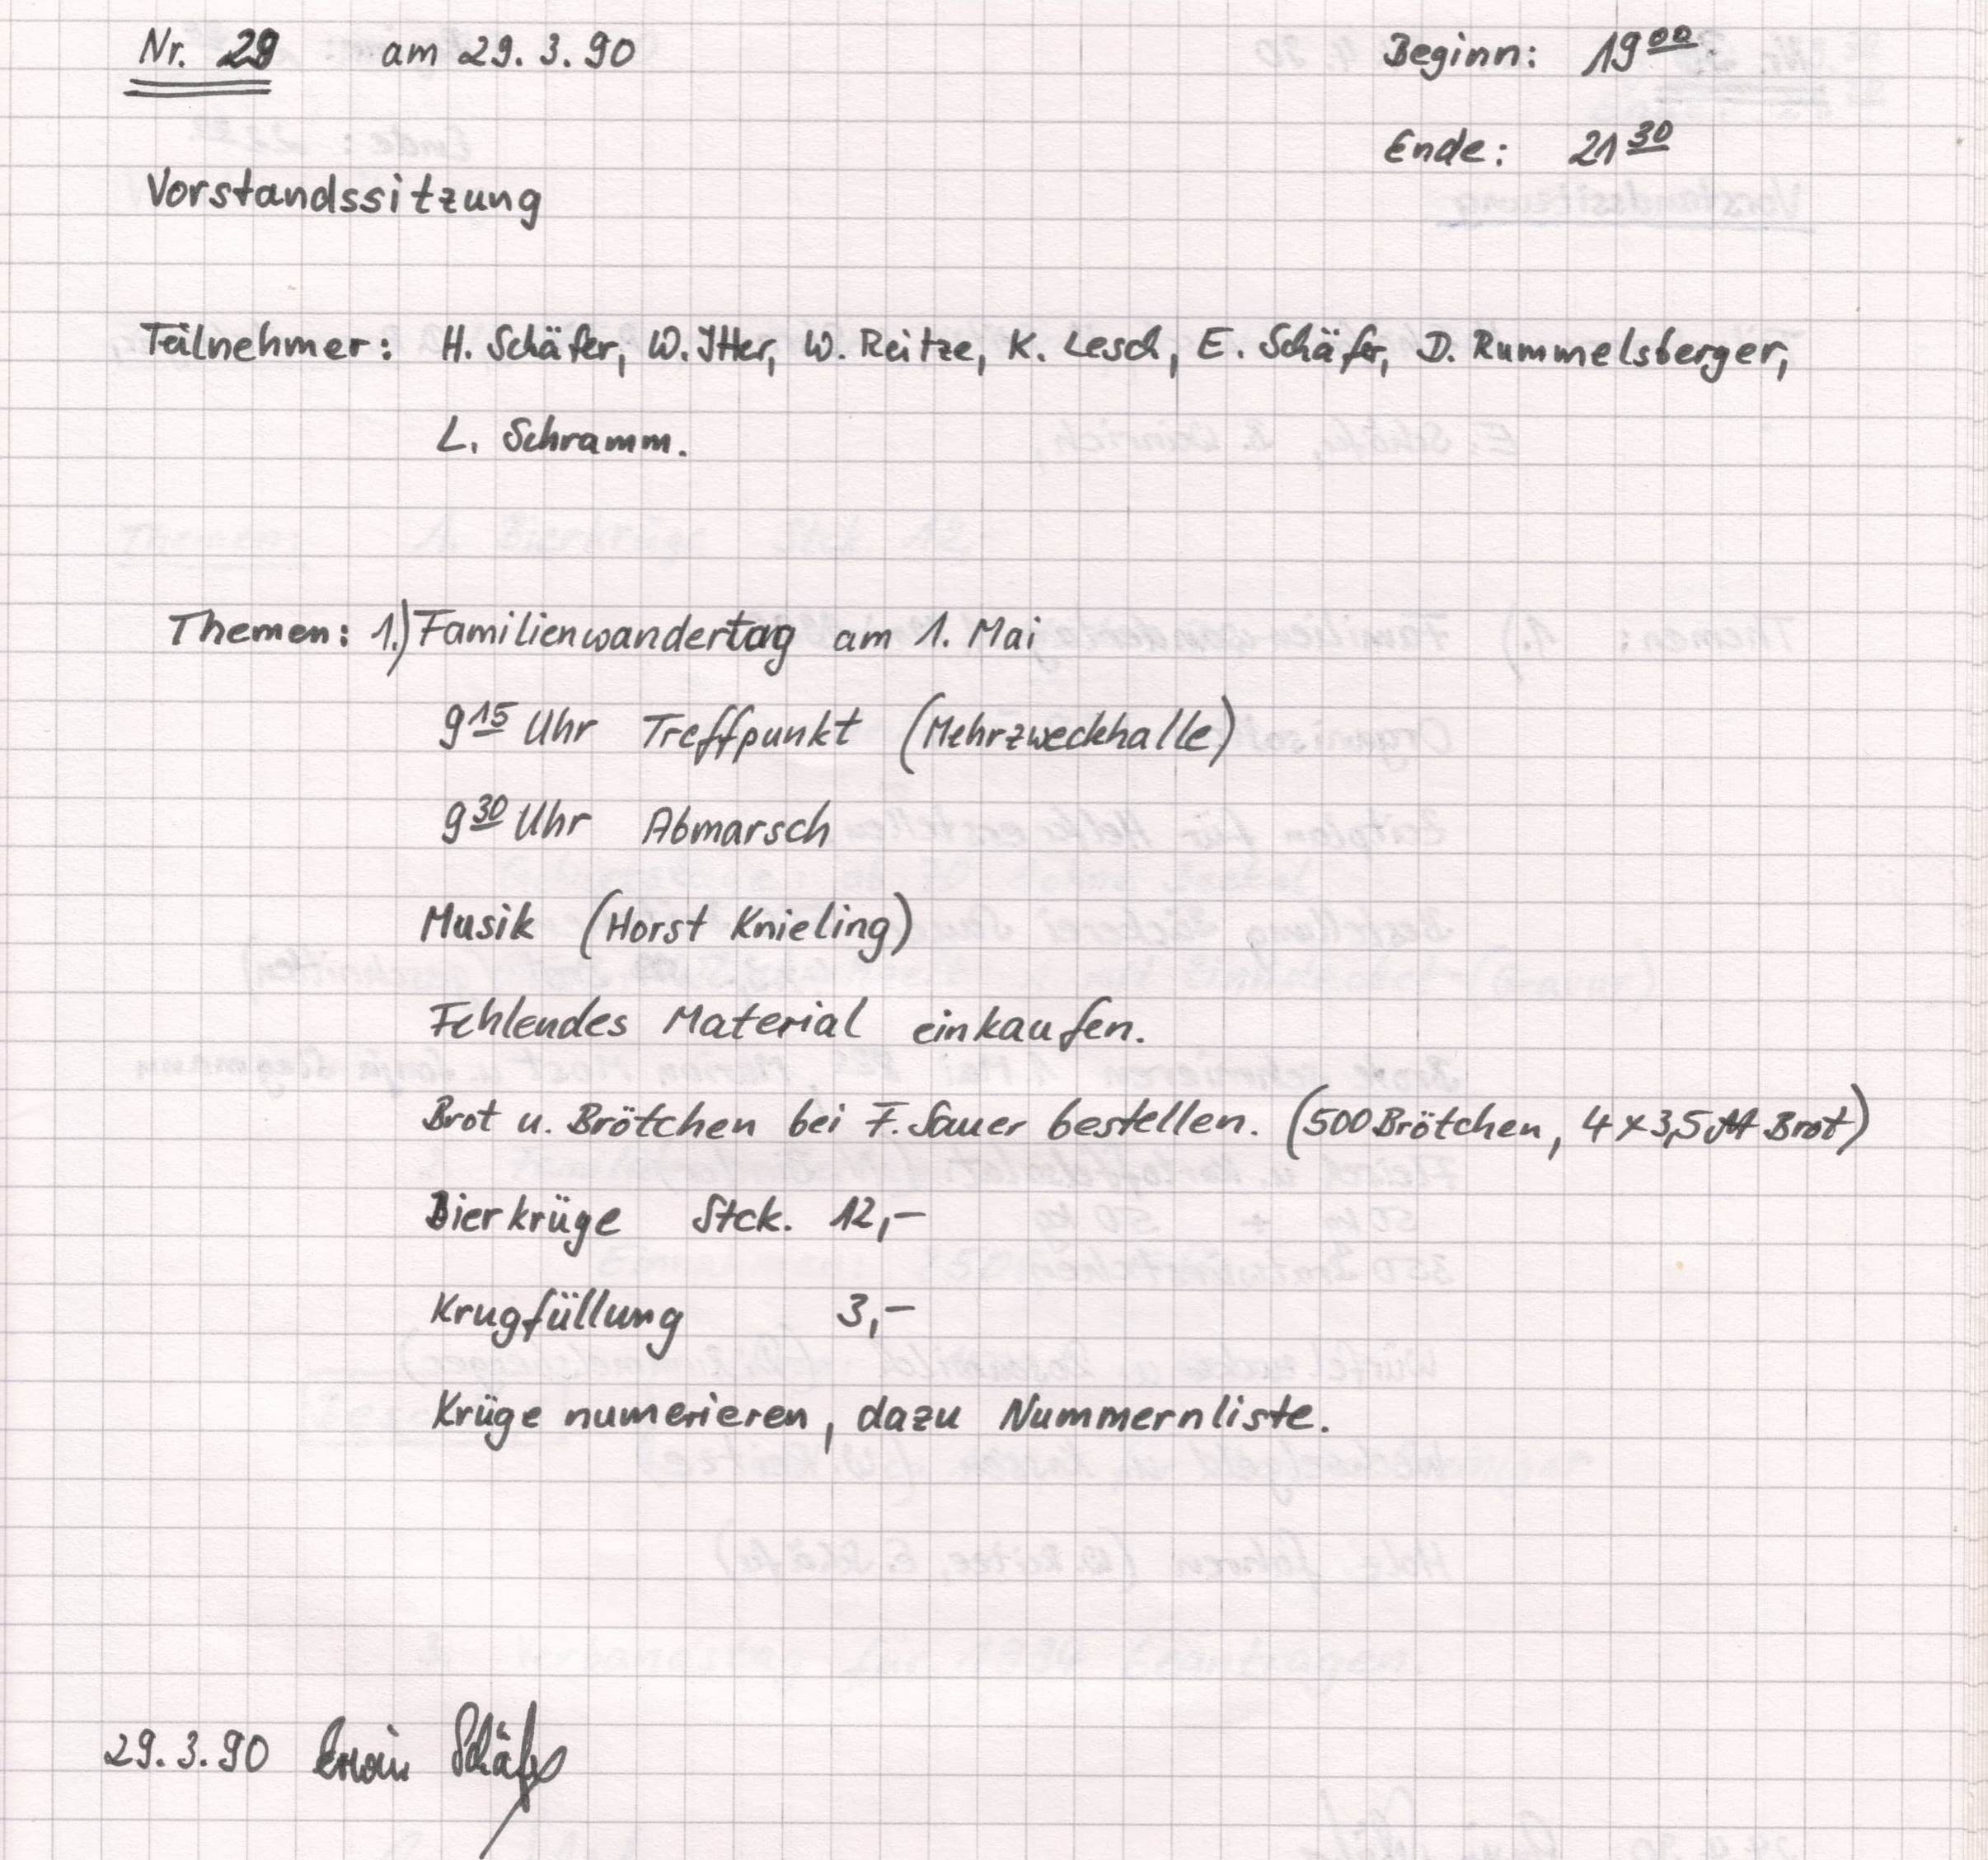 Nr. 29 am 29.3.90 Beginn: 19⁰⁰
Ende: 21³⁰
Vorstandssitzung
Teilnehmer: H. Schäfer, W. Itter, W. Reitze, K. Lesch, E. Schäfer, D. Rummelsberger,
L. Schramm.
Themen: 1.) Familienwandertag am 1. Mai
9¹⁵ Uhr Treffpunkt (Mehrzweckhalle)
9³⁰ Uhr Abmarsch
Musik (Horst Knieling)
Fehlendes Material einkaufen.
Brot u. Brötchen bei F. Sauer bestellen. (500 Brötchen, 4 x 3,5 Brot)
Bierkrüge Stck. 12,-
Krugfüllung 3,-
Krüge numerieren, dazu Nummernliste.
29.3.90 Erwin Schäfer